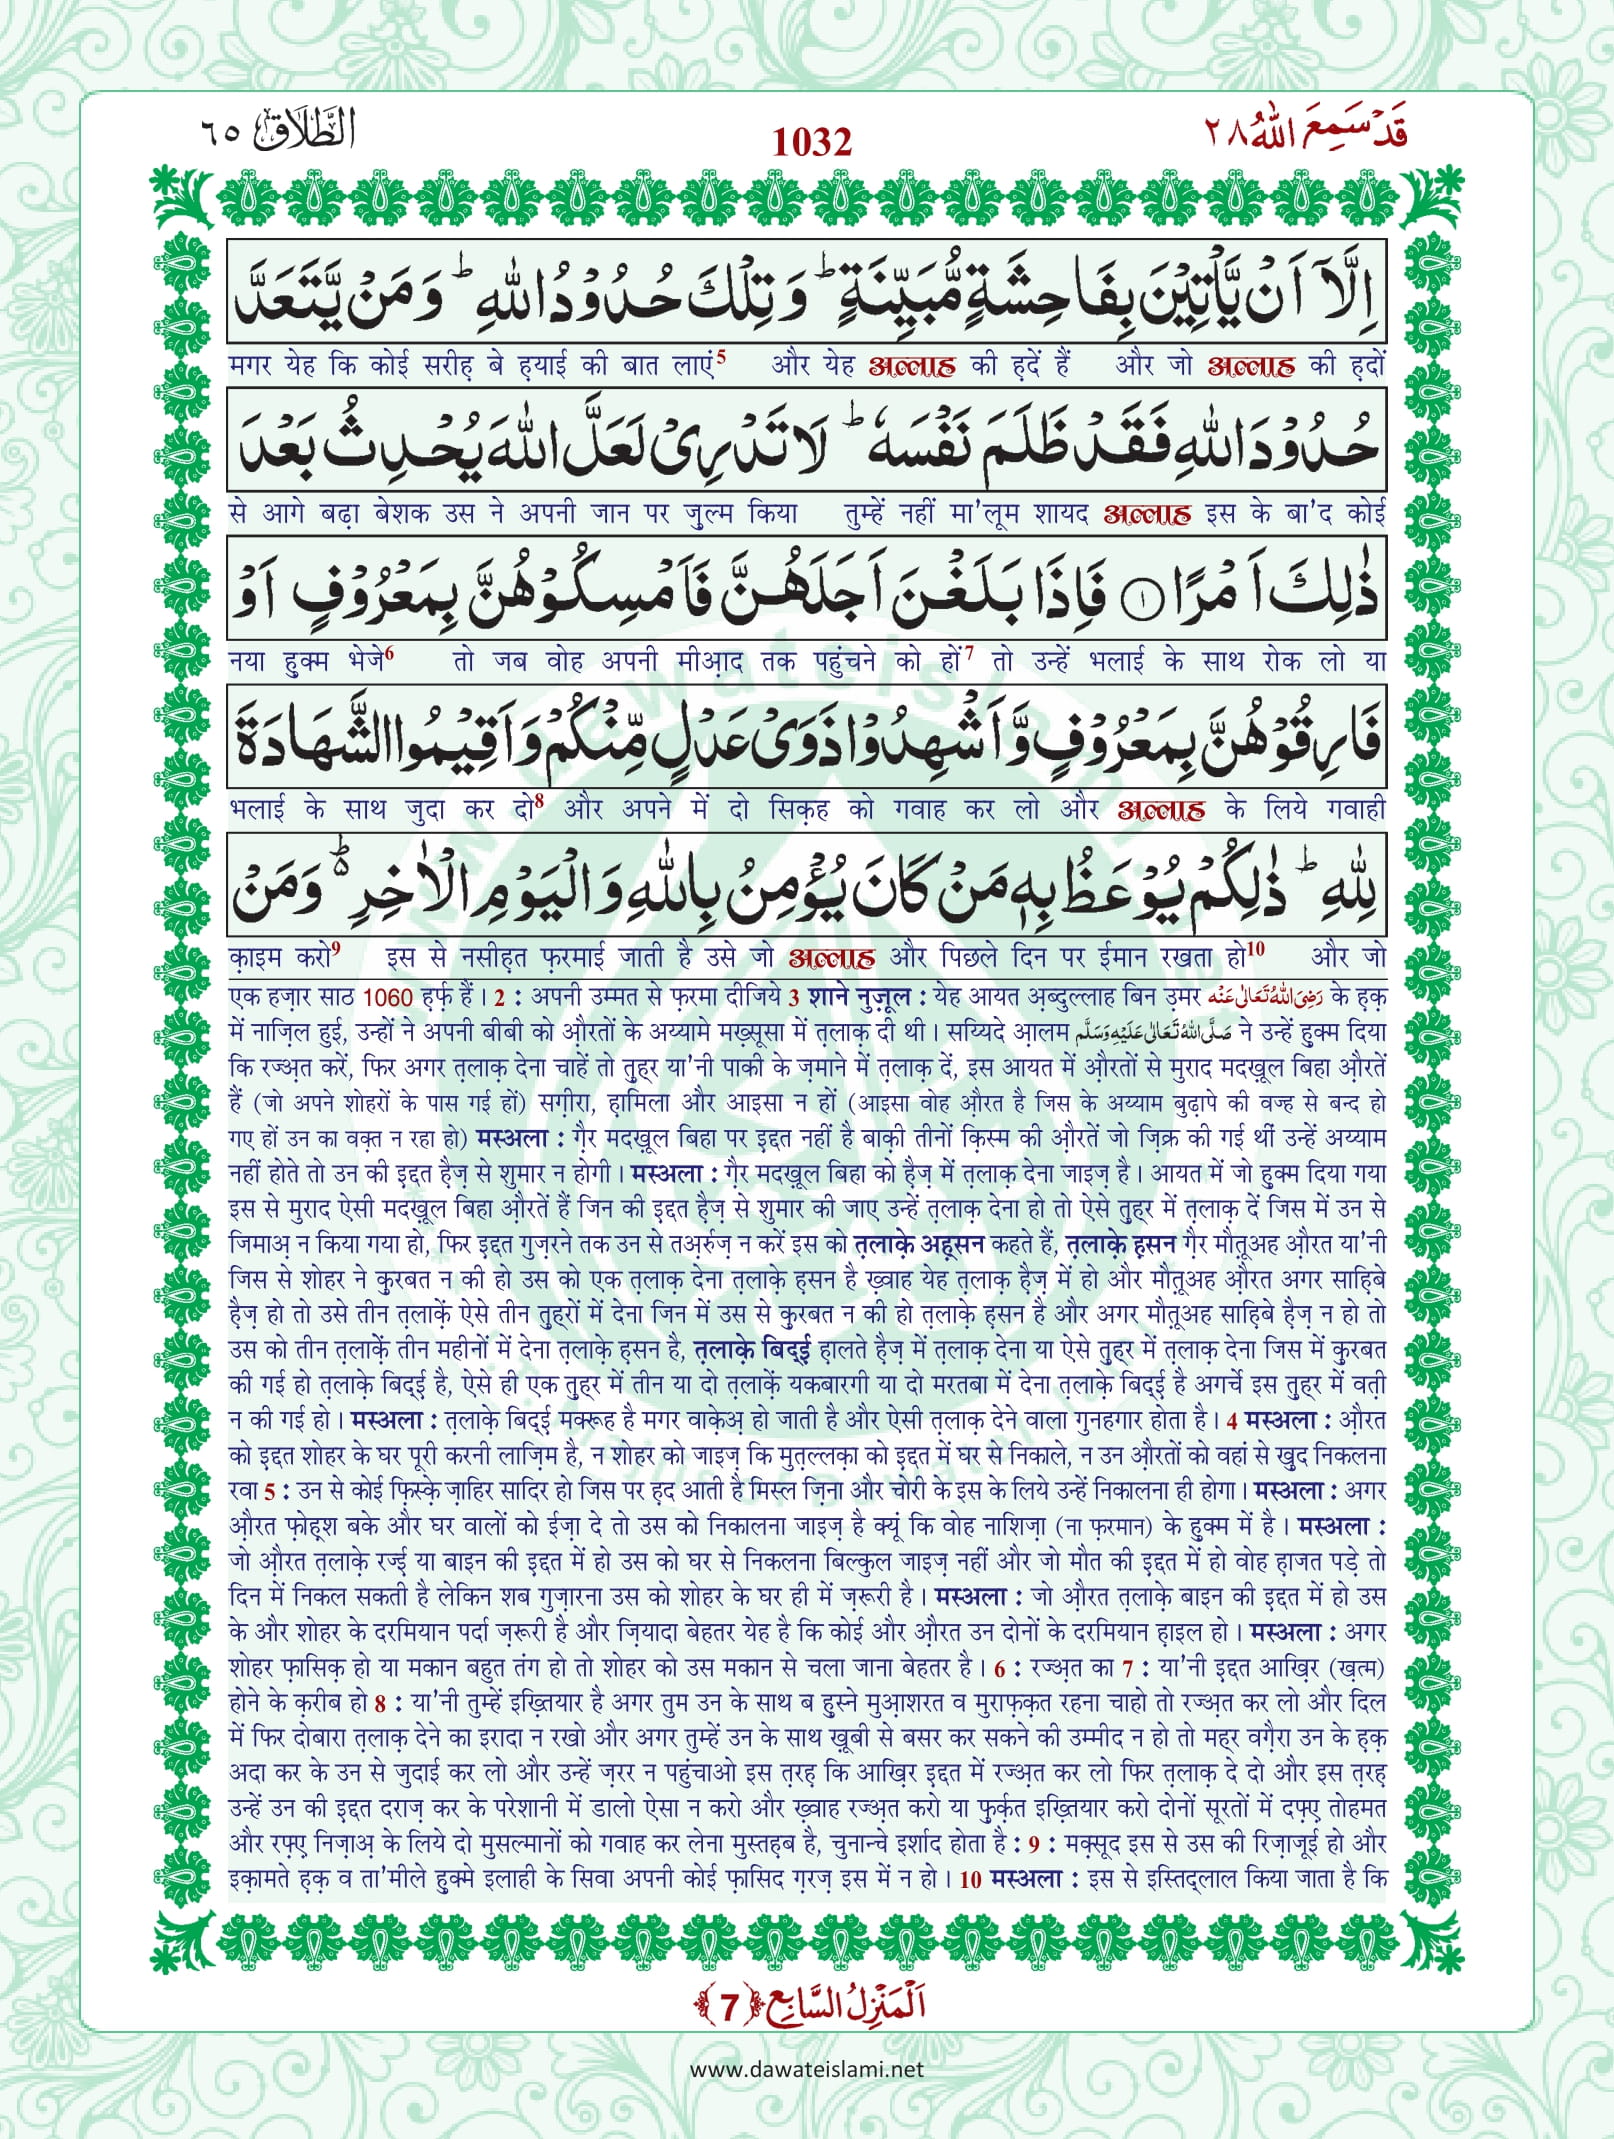 قَدْ سَمِعَ اللّٰهُ ٢٨
1032
الطَّلَاق ٦٥
اِلَّاۤ اَنْ يَّاْتِيْنَ بِفَاحِشَةٍ مُّبَيِّنَةٍ ؕ وَ تِلْكَ حُدُوْدُ اللّٰهِ ؕ وَ مَنْ يَّتَعَدَّ
मगर येह कि कोई सरीह़ बे ह़याई की बात लाएं5 और येह अल्लाह की ह़दें हैं और जो अल्लाह की ह़दों
حُدُوْدَ اللّٰهِ فَقَدْ ظَلَمَ نَفْسَهٗ ؕ لَا تَدْرِىْ لَعَلَّ اللّٰهَ يُحْدِثُ بَعْدَ
से आगे बढ़ा बेशक उस ने अपनी जान पर ज़ुल्म किया तुम्हें नहीं मा'लूम शायद अल्लाह इस के बा'द कोई
ذٰلِكَ اَمْرًا ۝١ فَاِذَا بَلَغْنَ اَجَلَهُنَّ فَاَمْسِكُوْهُنَّ بِمَعْرُوْفٍ اَوْ
नया हुक्म भेजे6 तो जब वोह अपनी मीआ़द तक पहुंचने को हों7 तो उन्हें भलाई के साथ रोक लो या
فَارِقُوْهُنَّ بِمَعْرُوْفٍ وَّ اَشْهِدُوْا ذَوَىْ عَدْلٍ مِّنْكُمْ وَ اَقِيْمُوا الشَّهَادَةَ
भलाई के साथ जुदा कर दो8 और अपने में दो सिक़ह को गवाह कर लो और अल्लाह के लिये गवाही
لِلّٰهِ ؕ ذٰلِكُمْ يُوْعَظُ بِهٖ مَنْ كَانَ يُؤْمِنُ بِاللّٰهِ وَ الْيَوْمِ الْاٰخِرِ ۬ؕ وَ مَنْ
क़ाइम करो9 इस से नसीह़त फ़रमाई जाती है उसे जो अल्लाह और पिछले दिन पर ईमान रखता हो10 और जो
एक हज़ार साठ 1060 हर्फ़ हैं। 2 : अपनी उम्मत से फ़रमा दीजिये 3 शाने नुज़ूल : येह आयत अ़ब्दुल्लाह बिन उमर رَضِىَ اللّٰهُ تَعَالٰى عَنْه के ह़क़
में नाज़िल हुई, उन्हों ने अपनी बीबी को औ़रतों के अय्यामे मख़्सूसा में त़लाक़ दी थी। सय्यिदे आ़लम صَلَّى اللّٰهُ تَعَالٰى عَلَيْهِ وَسَلَّم ने उन्हें हुक्म दिया
कि रज्अ़त करें, फिर अगर त़लाक़ देना चाहें तो तुह्र या'नी पाकी के ज़माने में त़लाक़ दें, इस आयत में औ़रतों से मुराद मदख़ूल बिहा औ़रतें
हैं (जो अपने शोहरों के पास गई हों) सग़ीरा, ह़ामिला और आइसा न हों (आइसा वोह औ़रत है जिस के अय्याम बुढ़ापे की वज्ह से बन्द हो
गए हों उन का वक़्त न रहा हो) मस्अला : ग़ैर मदख़ूल बिहा पर इ़द्दत नहीं है बाक़ी तीनों क़िस्म की औ़रतें जो ज़िक्र की गई थीं उन्हें अय्याम
नहीं होते तो उन की इ़द्दत है़ज़ से शुमार न होगी। मस्अला : ग़ैर मदख़ूल बिहा को है़ज़ में त़लाक़ देना जाइज़ है। आयत में जो हुक्म दिया गया
इस से मुराद ऐसी मदख़ूल बिहा औ़रतें हैं जिन की इ़द्दत है़ज़ से शुमार की जाए उन्हें त़लाक़ देना हो तो ऐसे तुह्र में त़लाक़ दें जिस में उन से
जिमाअ़ न किया गया हो, फिर इ़द्दत गुज़रने तक उन से तअ़र्रुज़ न करें इस को त़लाक़े अह़्सन कहते हैं, त़लाक़े ह़सन ग़ैर मौत़ूअह औ़रत या'नी
जिस से शोहर ने क़ुरबत न की हो उस को एक त़लाक़ देना त़लाक़े ह़सन है ख़्वाह येह त़लाक़ है़ज़ में हो और मौत़ूअह औ़रत अगर साह़िबे
है़ज़ हो तो उसे तीन त़लाक़ें ऐसे तीन तुह्रों में देना जिन में उस से क़ुरबत न की हो त़लाक़े ह़सन है और अगर मौत़ूअह साह़िबे है़ज़ न हो तो
उस को तीन त़लाक़ें तीन महीनों में देना त़लाक़े ह़सन है, त़लाक़े बिद्ई़ ह़ालते है़ज़ में त़लाक़ देना या ऐसे तुह्र में त़लाक़ देना जिस में क़ुरबत
की गई हो त़लाक़े बिद्ई़ है, ऐसे ही एक तुह्र में तीन या दो त़लाक़ें यकबारगी या दो मरतबा में देना त़लाक़े बिद्ई़ है अगर्चे इस तुह्र में वत़ी
न की गई हो। मस्अला : त़लाक़े बिद्ई़ मक्रूह है मगर वाक़ेअ़ हो जाती है और ऐसी त़लाक़ देने वाला गुनहगार होता है। 4 मस्अला : औ़रत
को इ़द्दत शोहर के घर पूरी करनी लाज़िम है, न शोहर को जाइज़ कि मुत़ल्लक़ा को इ़द्दत में घर से निकाले, न उन औ़रतों को वहां से ख़ुद निकलना
रवा 5 : उन से कोई फ़िस्क़े ज़ाहिर सादिर हो जिस पर ह़द आती है मिस्ल ज़िना और चोरी के इस के लिये उन्हें निकालना ही होगा। मस्अला : अगर
औ़रत फ़ोह़्श बके और घर वालों को ईज़ा दे तो उस को निकालना जाइज़ है क्यूं कि वोह नाशिज़ा (ना फ़रमान) के हुक्म में है। मस्अला :
जो औ़रत त़लाक़े रज्ई़ या बाइन की इ़द्दत में हो उस को घर से निकलना बिल्कुल जाइज़ नहीं और जो मौत की इ़द्दत में हो वोह ह़ाजत पड़े तो
दिन में निकल सकती है लेकिन शब गुज़ारना उस को शोहर के घर ही में ज़रूरी है। मस्अला : जो औ़रत त़लाक़े बाइन की इ़द्दत में हो उस
के और शोहर के दरमियान पर्दा ज़रूरी है और ज़ियादा बेहतर येह है कि कोई और औ़रत उन दोनों के दरमियान ह़ाइल हो। मस्अला : अगर
शोहर फ़ासिक़ हो या मकान बहुत तंग हो तो शोहर को उस मकान से चला जाना बेहतर है। 6 : रज्अ़त का 7 : या'नी इ़द्दत आख़िर (ख़त्म)
होने के क़रीब हो 8 : या'नी तुम्हें इख़्तियार है अगर तुम उन के साथ ब हुस्ने मुआ़शरत व मुराफ़क़त रहना चाहो तो रज्अ़त कर लो और दिल
में फिर दोबारा त़लाक़ देने का इरादा न रखो और अगर तुम्हें उन के साथ ख़ूबी से बसर कर सकने की उम्मीद न हो तो मह्र वग़ैरा उन के ह़क़
अदा कर के उन से जुदाई कर लो और उन्हें ज़रर न पहुंचाओ इस त़रह़ कि आख़िर इ़द्दत में रज्अ़त कर लो फिर त़लाक़ दे दो और इस त़रह़
उन्हें उन की इ़द्दत दराज़ कर के परेशानी में डालो ऐसा न करो और ख़्वाह रज्अ़त करो या फ़ुर्क़त इख़्तियार करो दोनों सूरतों में दफ़्ए़ तोहमत
और रफ़्ए़ निज़ाअ़ के लिये दो मुसल्मानों को गवाह कर लेना मुस्तह़ब है, चुनान्चे इर्शाद होता है : 9 : मक़्सूद इस से उस की रिज़ाजूई हो और
इक़ामते ह़क़ व ता'मीले हुक्मे इलाही के सिवा अपनी कोई फ़ासिद ग़रज़ इस में न हो। 10 मस्अला : इस से इस्तिद्लाल किया जाता है कि
اَلْمَنْزِلُ السَّابِع ﴿7﴾
www.dawateislami.net